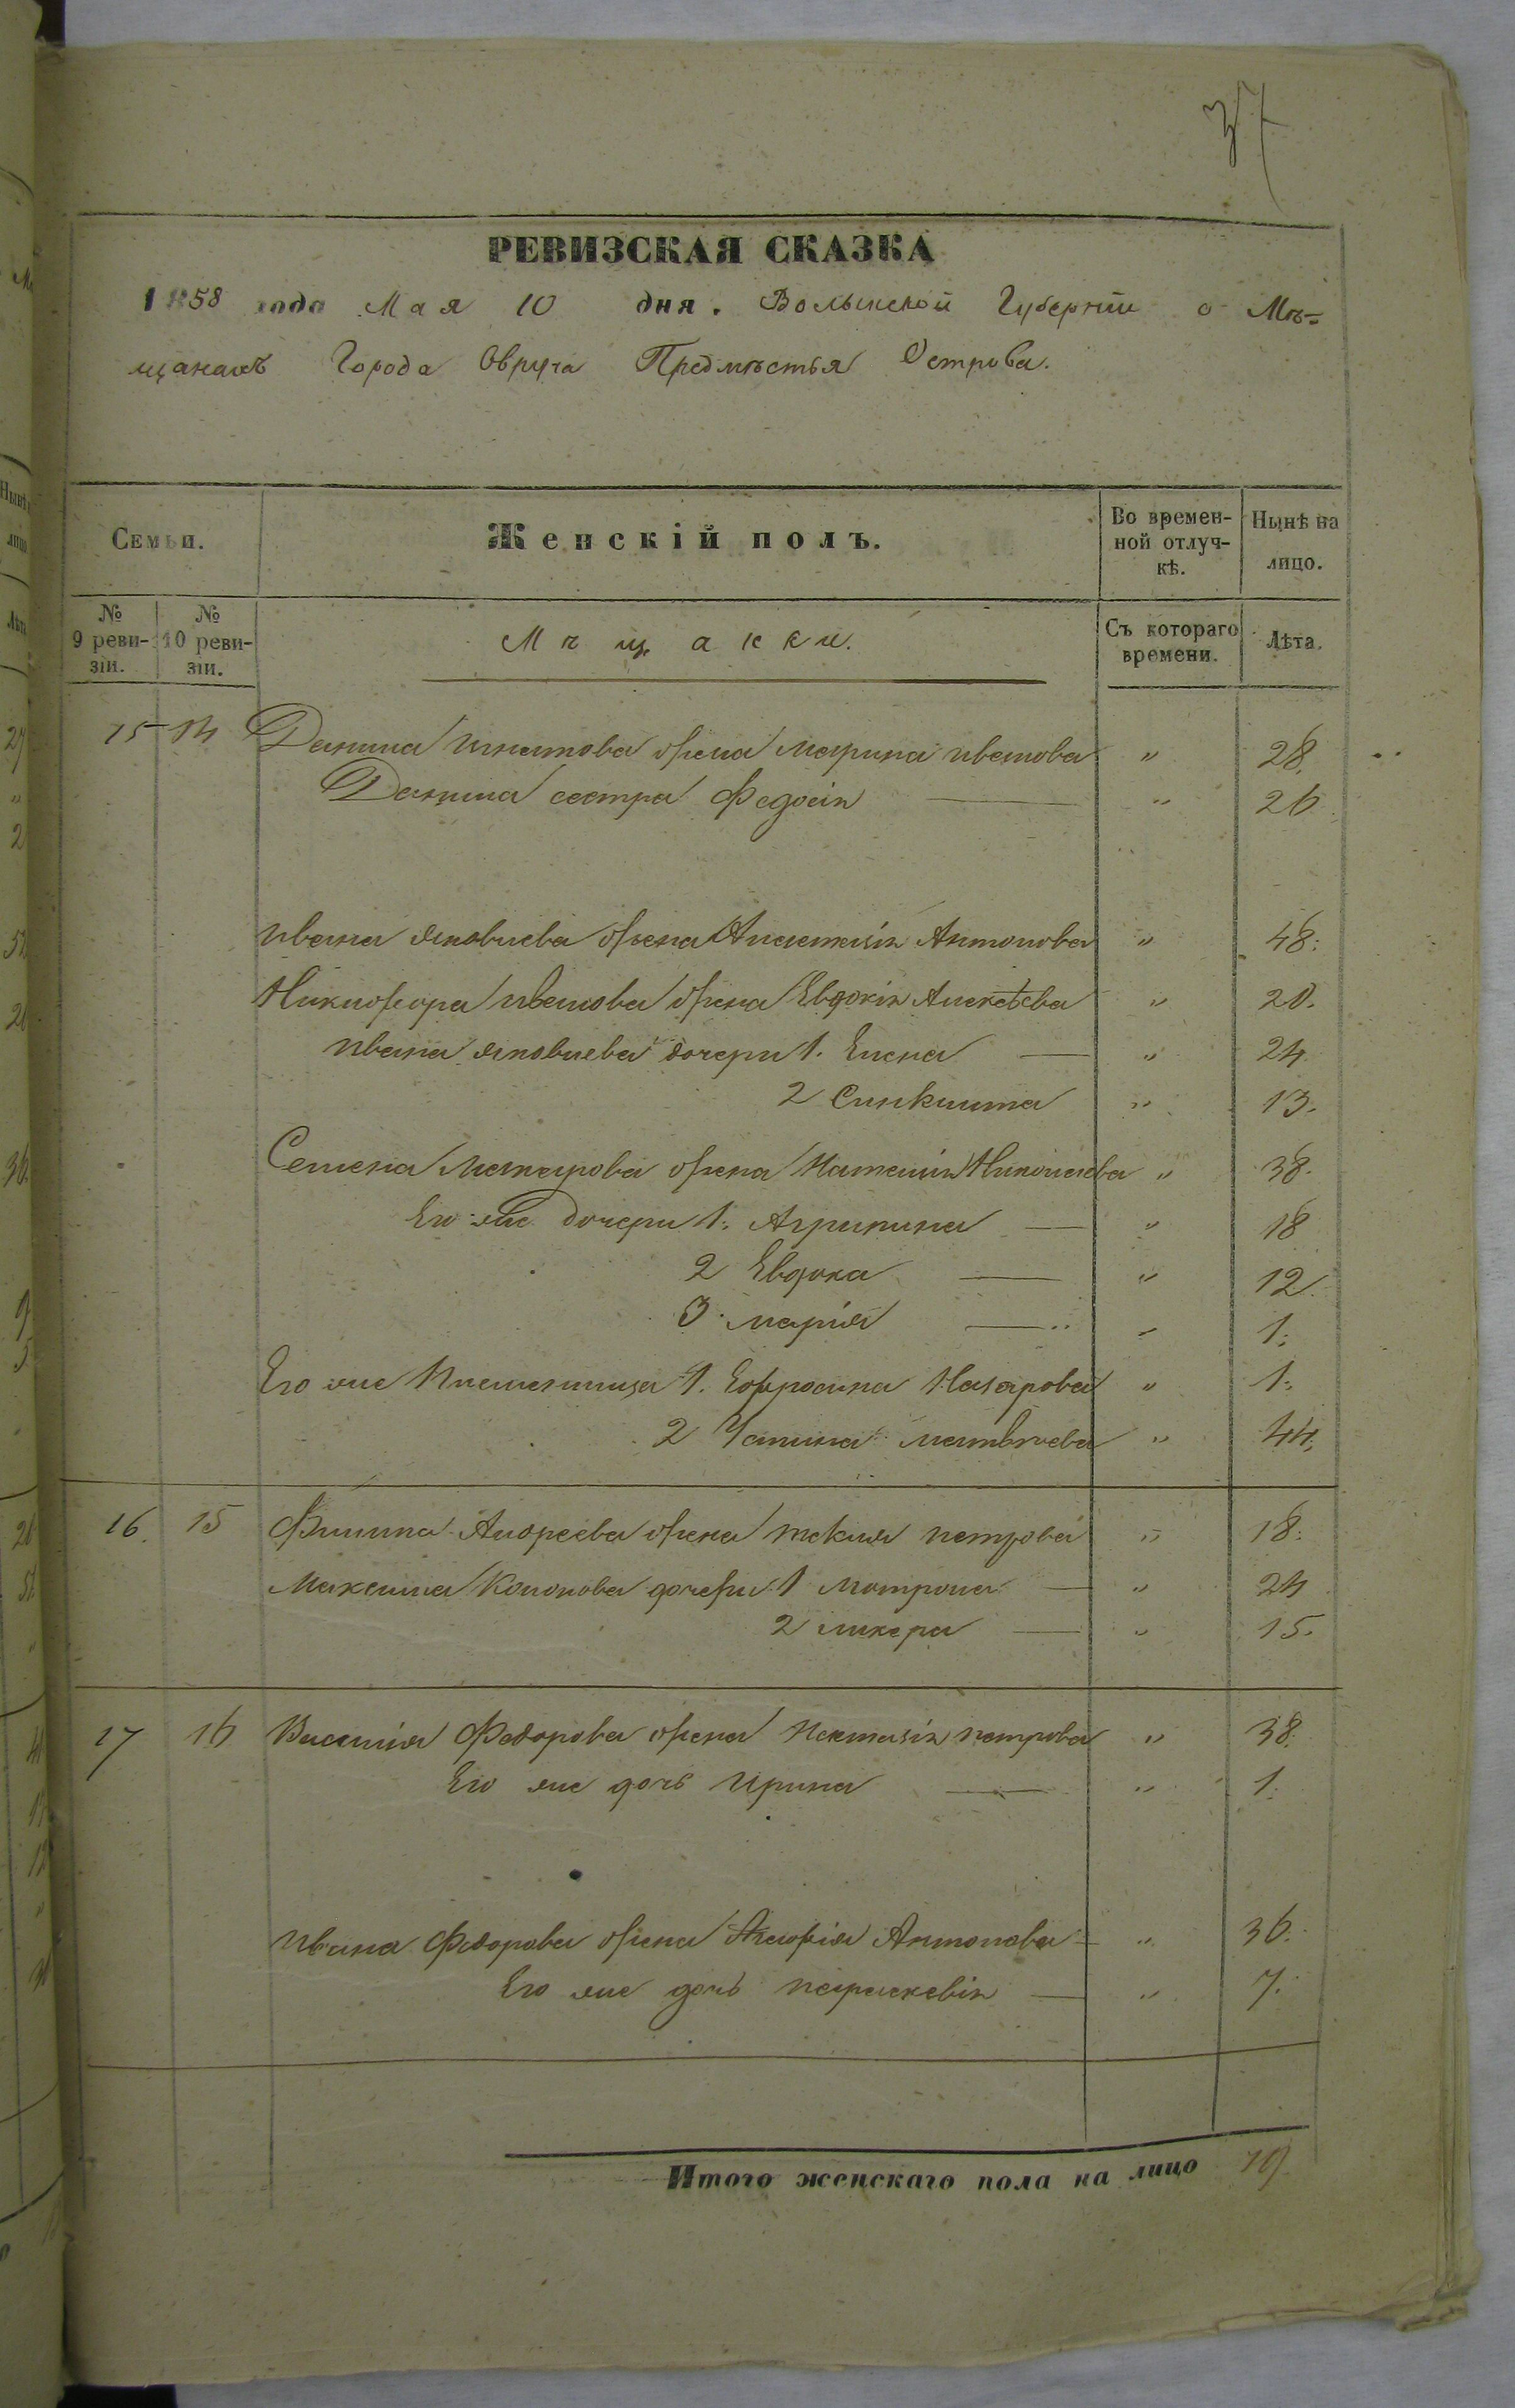 37
РЕВИЗСКАЯ СКАЗКА
1858 года Мая 10 дня. Волынской Губернiи о Мѣ=
щанахъ Города Овруча Предмѣстья Острова.
Семьи. Женскій полъ. Во времен-ной отлуч-кѣ. Нынѣ на лицо.
№ 9 реви-зіи. № 10 реви-зіи. Мѣщанки. Съ котораго времени. Лѣта.
15 14 Данила Игнатова жена Марина Иванова " 28.
Данила сестра Федосія " 26
Ивана Яковлева жена Анастасія Антонова " 48.
Никифора Иванова жена Евдокія Алексѣева " 20.
Ивана Яковлева дочери 1. Елена " 24
2 Синклита " 13.
Семена Макарова жена Наталія Николаева " 38.
Его же дочери 1. Агрипина " 18
2 Евдока " 12
3 Марія " 1.
Его же Племянница 1. Ефросина Назарова " 1.
2 Матвѣева " 44.
16. 15 Филипа Андреева жена Текля Петрова " 18.
Максима Кононова дочери 1 Матрона " 24
2 Ликера " 15.
17 16 Василія Федорова жена Настасія Петрова " 38.
Его же дочь Ирина " 1.
Ивана Федорова жена Антонова " 36.
Его же дочь Параскевія " 7.
Итого женскаго пола на лицо 19.